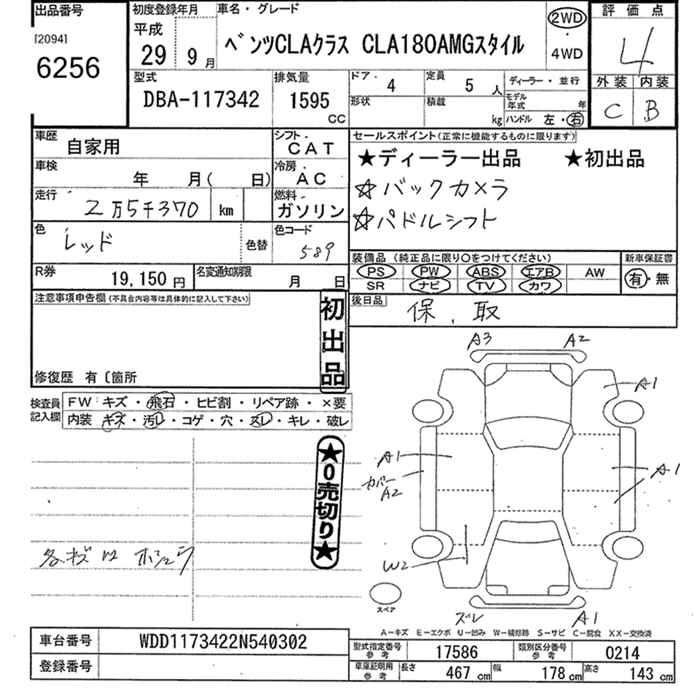 出品番号
[2094]
6256
初度登録年月
平成
29年 9月
車名・グレード
ベンツCLAクラス CLA180AMGスタイル
2WD
・
4WD
評価点
4
外装 内装
C B
型式
DBA-117342
排気量
1595
CC
ドア・ 4
定員 5 人
形状
積載 kg
ディーラー・並行
モデル年式 年
ハンドル 左・右
車歴
自家用
シフト
CAT
車検
年 月( 日)
冷房
AC
走行
2万5千370 km
燃料
ガソリン
色
レッド
色替
色コード
589
R券
19,150 円
名変通知期限
月 日
セールスポイント(正常に機能するものに限ります)
★ディーラー出品 ★初出品
☆バックカメラ
☆パドルシフト
装備品(純正品に限り○をつけてください)
新車保証書
PS PW ABS エアB AW
SR ナビ TV カワ
有・無
後日品
保、取
注意事項申告欄(不具合内容等は具体的に記入して下さい)
初出品
修復歴 有〔箇所
検査員記入欄
FW キズ・飛石・ヒビ割・リペア跡・×要
内装 キズ・汚レ・コゲ・穴・スレ・キレ・破レ
★0売切り★
A3 A2
A1
A1
カバー
A2
A1
W2
スペア
ズレ A1
A-キズ E-エクボ U-凹み W-補修跡 S-サビ C-腐食 XX-交換済
車台番号
WDD1173422N540302
登録番号
型式指定番号
参考
17586
類別区分番号
参考
0214
車庫証明用
参考
長さ 467 cm
幅 178 cm
高さ 143 cm